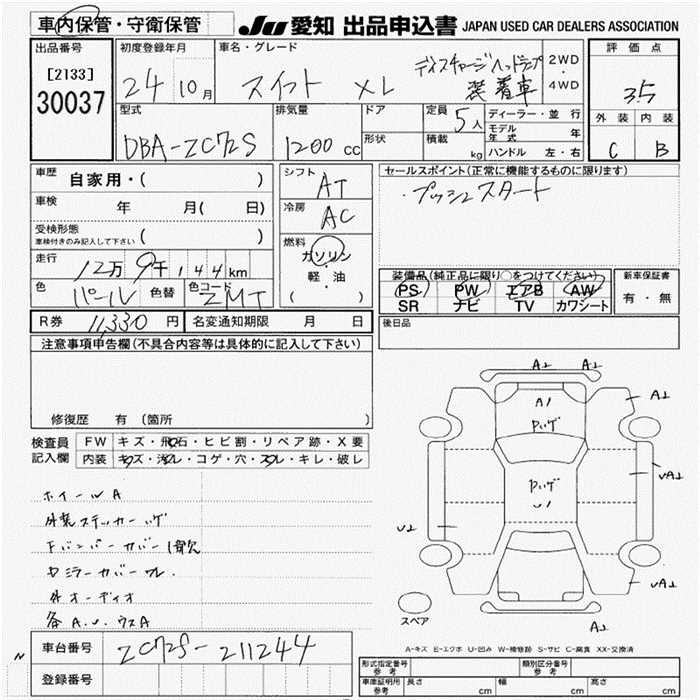 車内保管・守衛保管
JU 愛知 出品申込書 JAPAN USED CAR DEALERS ASSOCIATION
出品番号
[2133]
30037
初度登録年月
24 10月
車名・グレード
スイフト XL
ディスチャージヘッドランプ
装着車
2WD
・
4WD
評価点
3.5
外装 内装
C B
型式
DBA-ZC72S
排気量
1200 cc
ドア
形状
定員
5人
積載
kg
ディーラー・並行
モデル年式 年
ハンドル 左・右
車歴
自家用・( )
車検
年 月( 日)
受検形態
車検付きのみ記入して下さい ( )
走行
12万 9千 144km
色
パール
色替
色コード
ZMT
シフト
AT
冷房
AC
燃料
ガソリン
・
軽・油
( )
セールスポイント(正常に機能するものに限ります)
・プッシュスタート
装備品(純正品に限り○をつけてください)
PS PW エアB AW
SR ナビ TV カワシート
新車保証書
有・無
R券 11,330 円
名変通知期限 月 日
後日品
注意事項申告欄(不具合内容等は具体的に記入して下さい)
修復歴 有 (箇所
検査員
記入欄
FW キズ・飛石・ヒビ割・リペア跡・X要
内装 キズ・汚レ・コゲ・穴・スレ・キレ・破レ
ホイールA
外装ステッカーハゲ
Fバンパーカバー1ケ欠
ドミラーカバーワレ.
外オーディオ
各A.U.ウスA
A2 A2
A1
A2
ハゲ
ハゲ
U1
U2
A2
スペア
A-キズ E-エクボ U-凹み W-補修跡 S-サビ C-腐食 XX-交換済
車台番号
ZC72S-211244
登録番号
形式指定番号
参考
類別区分番号
参考
車庫証明用
参考
長さ cm
幅 cm
高さ cm